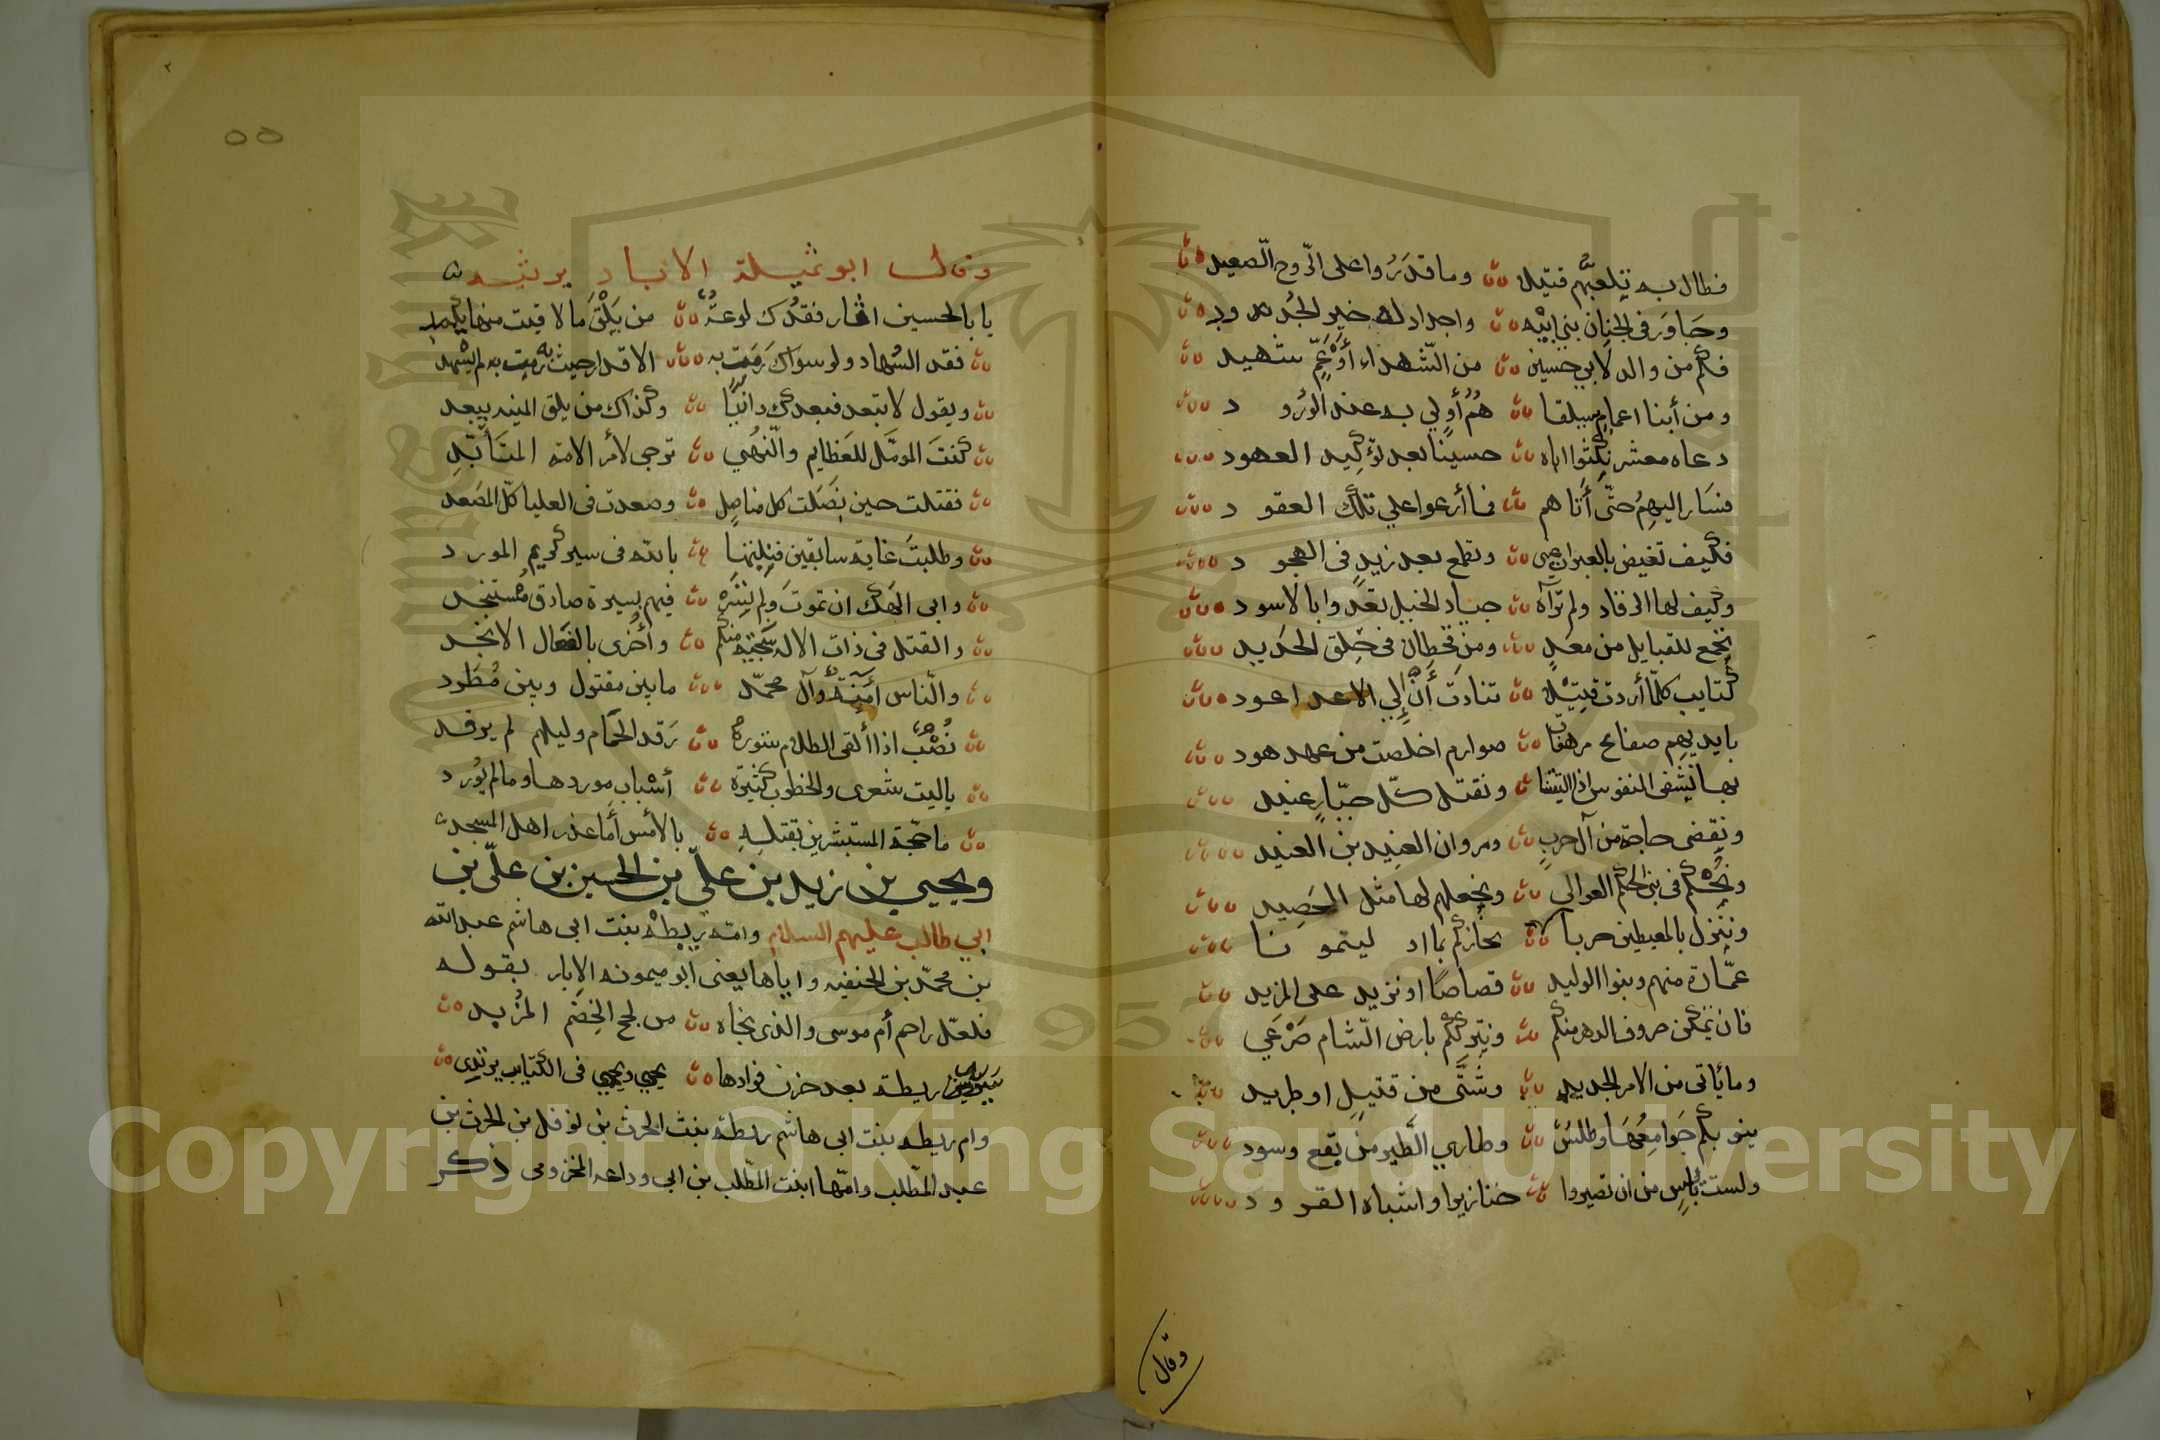 فطال به تلعبهم فتيلا وما قدروا على الروح الصعيد
وجاور في الجنان بني ابيه واجدادا هم خير الجدود
فكم من والد لابي حسين من الشهداء أو عم شهيد
ومن أبنا اعمام سيلقا هم أولي به عند الورود
دعاه معشر نكثوا اباه حسينا بعد توكيد العهود
فسار اليهم حتى أتاهم فما أرعوا علي تلك العقود
فكيف تغيض بالعبرات عيني وتطمع بعد زيد في الهجود
وكيف لها الرقاد ولم تراه جياد الخيل تعدوا بالاسود
تجمع للقبايل من معد ومن قحطان في حلق الحديد
كتايب كلما أردت قتيلا تنادت أن إلي الاعدا عود
بايديهم صفائح مرهفات صوارم اخلصت من عهد هود
بها نشفى النفوس اذا التقينا ونقتل كل جبار عنيد
ونقضى حاجة من آل حرب ومروان العنيد بن العنيد
ونحكم في بني الحكم العوالي ونجعلهم لها مثل الحصيد
وننزل بالمعيطين حربا
عمارة منهم وبنوا الوليد قصاصا او نزيد على المزيد
فان تمكن صروف الدهر منكم ونترككم بارض الشام صرعي
وما يأتى من الامر الجديد وشتى من قتيل او طريد
ينو بكم جوامعها وطلس وطاري الطير من بقع وسود
ولست بآيس من ان تصيروا خنازيرا واشباه القرود
وقال
وقال ابو ثميلة الابار يرثيه
يا با الحسين اثار فقدك لوعة من يلق ما لاقيت منها يكمد
فقد السهاد ولو سواك رمت به الاقدار حيث رمت به لم يشهد
ويقول لا تبعد فبعدك دانيا وكذاك من يلق المنيه يبعد
كنت المومل للعظايم والنهي ترجى لأمر الامة المتأبد
فقتلت حين نضلت كل مناضل وصعدت في العليا كل المصعد
وطلبت غاية سابقين فنلتها بالله في سير كريم المورد
وابى الهك ان تموت ولم تسر فيهم بسيرة صادق مستنجد
والقتل في ذات الاله سجية منكم وأحرى بالفعال الانجد
والناس أمنة وآل محمد ما بين مقتول وبين مطرد
نصب اذا ألقى الظلام ستوره رقد الحمام وليلهم لم يرقد
ياليت شعرى والخطوب كثيرة أسباب موردها وما لم يورد
ما حجة المستبشرين بقتله بالامس أما عذر اهل المسجد
ويحيي بن زيد بن علي بن الحسين بن علي بن
ابي طالب عليهم السلام وامه ريطة بنت ابى هاشم عبد الله
بن محمد بن الحنفيه واياها يعنى ابو ميمونه الابار بقوله
فلعل راحم أم موسى والذى نجاه من لجج الخضم المزبد
ريطة بعد حزن فوادها يحيي ويحيي في الكتايب يرتدي
وام ريطه بنت ابى هاشم ريطة بنت الحرث بن نوفل بن الحرث بن
عبد المطلب وامها ابنت المطلب بن ابي وداعه المخزومى ذكر